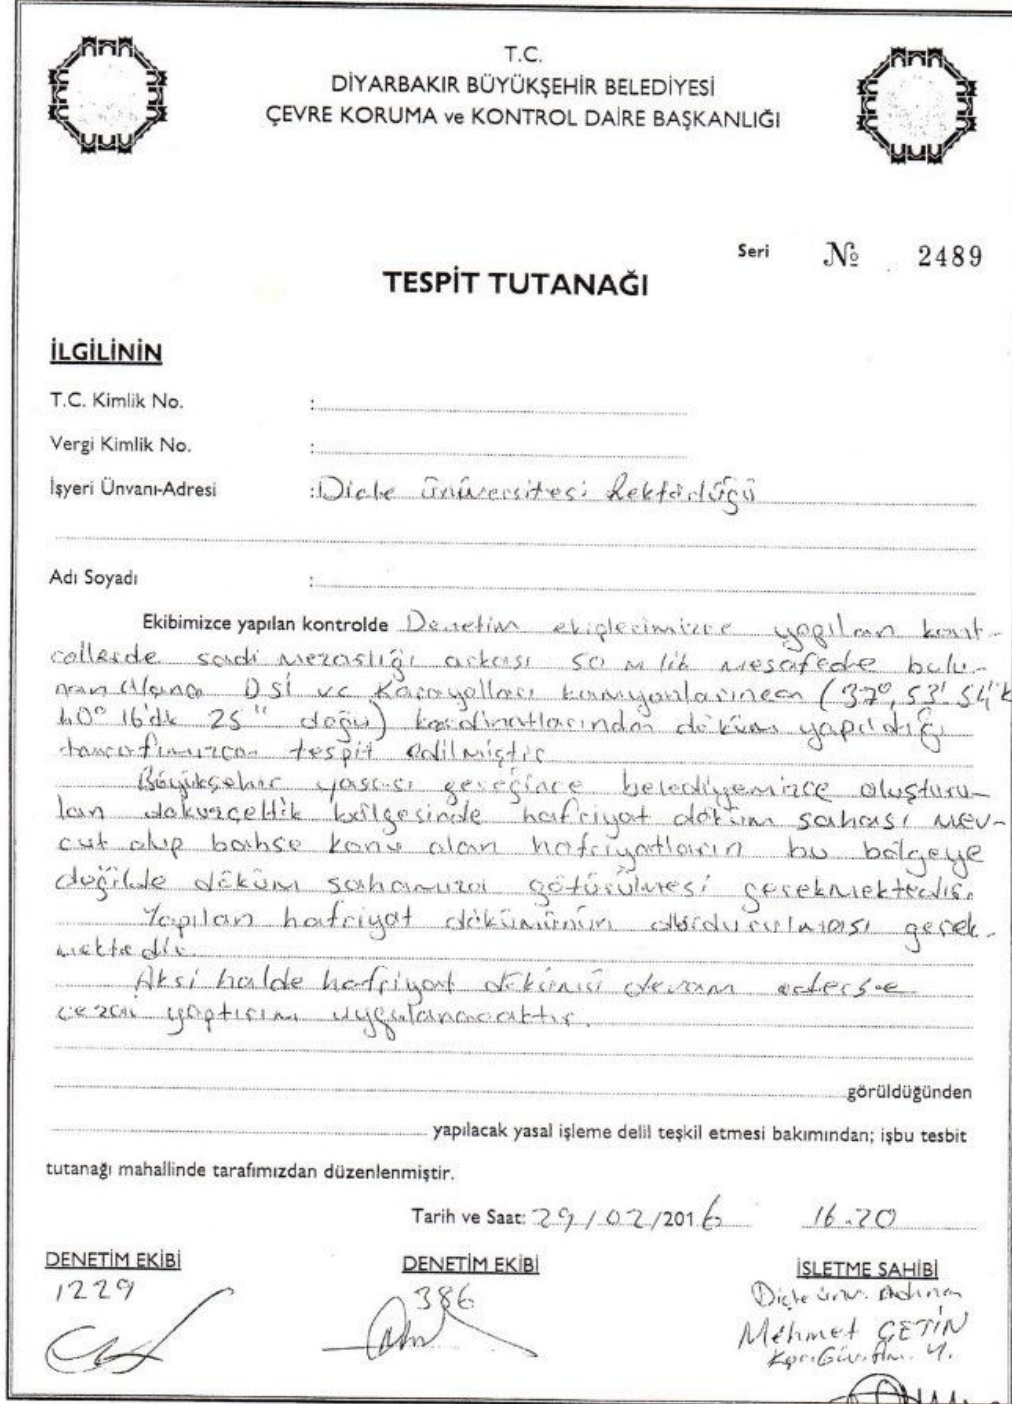 T.C.
DİYARBAKIR BÜYÜKŞEHİR BELEDİYESİ
ÇEVRE KORUMA ve KONTROL DAİRE BAŞKANLIĞI
Seri № 2489
TESPİT TUTANAĞI
İLGİLİNİN
T.C. Kimlik No. :
Vergi Kimlik No. :
İşyeri Ünvanı-Adresi : Dicle Üniversitesi Rektörlüğü
Adı Soyadı :
Ekibimizce yapılan kontrolde Denetim ekiplerimizce yapılan kont-
rollerde sadi mezarlığı arkası 50 m lik mesafede bulu-
nan DSİ ve Karayolları kamyonlarınca (37°, 53' 54" k
40° 16'dk 25" doğu) kordinatlarından döküm yapıldığı
tarafımızca tespit edilmiştir
Büyükşehir yasası gereğince belediyemizce oluşturu-
lan dokuzçeltik bölgesinde hafriyat döküm sahası mev-
cut olup bahse konu olan hafriyatların bu bölgeye
değilde döküm sahamıza götürülmesi gerekmektedir.
Yapılan hafriyat dökümünün durdurulması gerek-
mektedir.
Aksi halde hafriyat dökümü devam ederse
cezai yaptırım uygulanacaktır.
görüldüğünden
yapılacak yasal işleme delil teşkil etmesi bakımından; işbu tesbit
tutanağı mahallinde tarafımızdan düzenlenmiştir.
Tarih ve Saat: 29/02/2016 16.20
DENETİM EKİBİ DENETİM EKİBİ İŞLETME SAHİBİ
1229 386 Dicle ünv. Adına
Mehmet ÇETİN